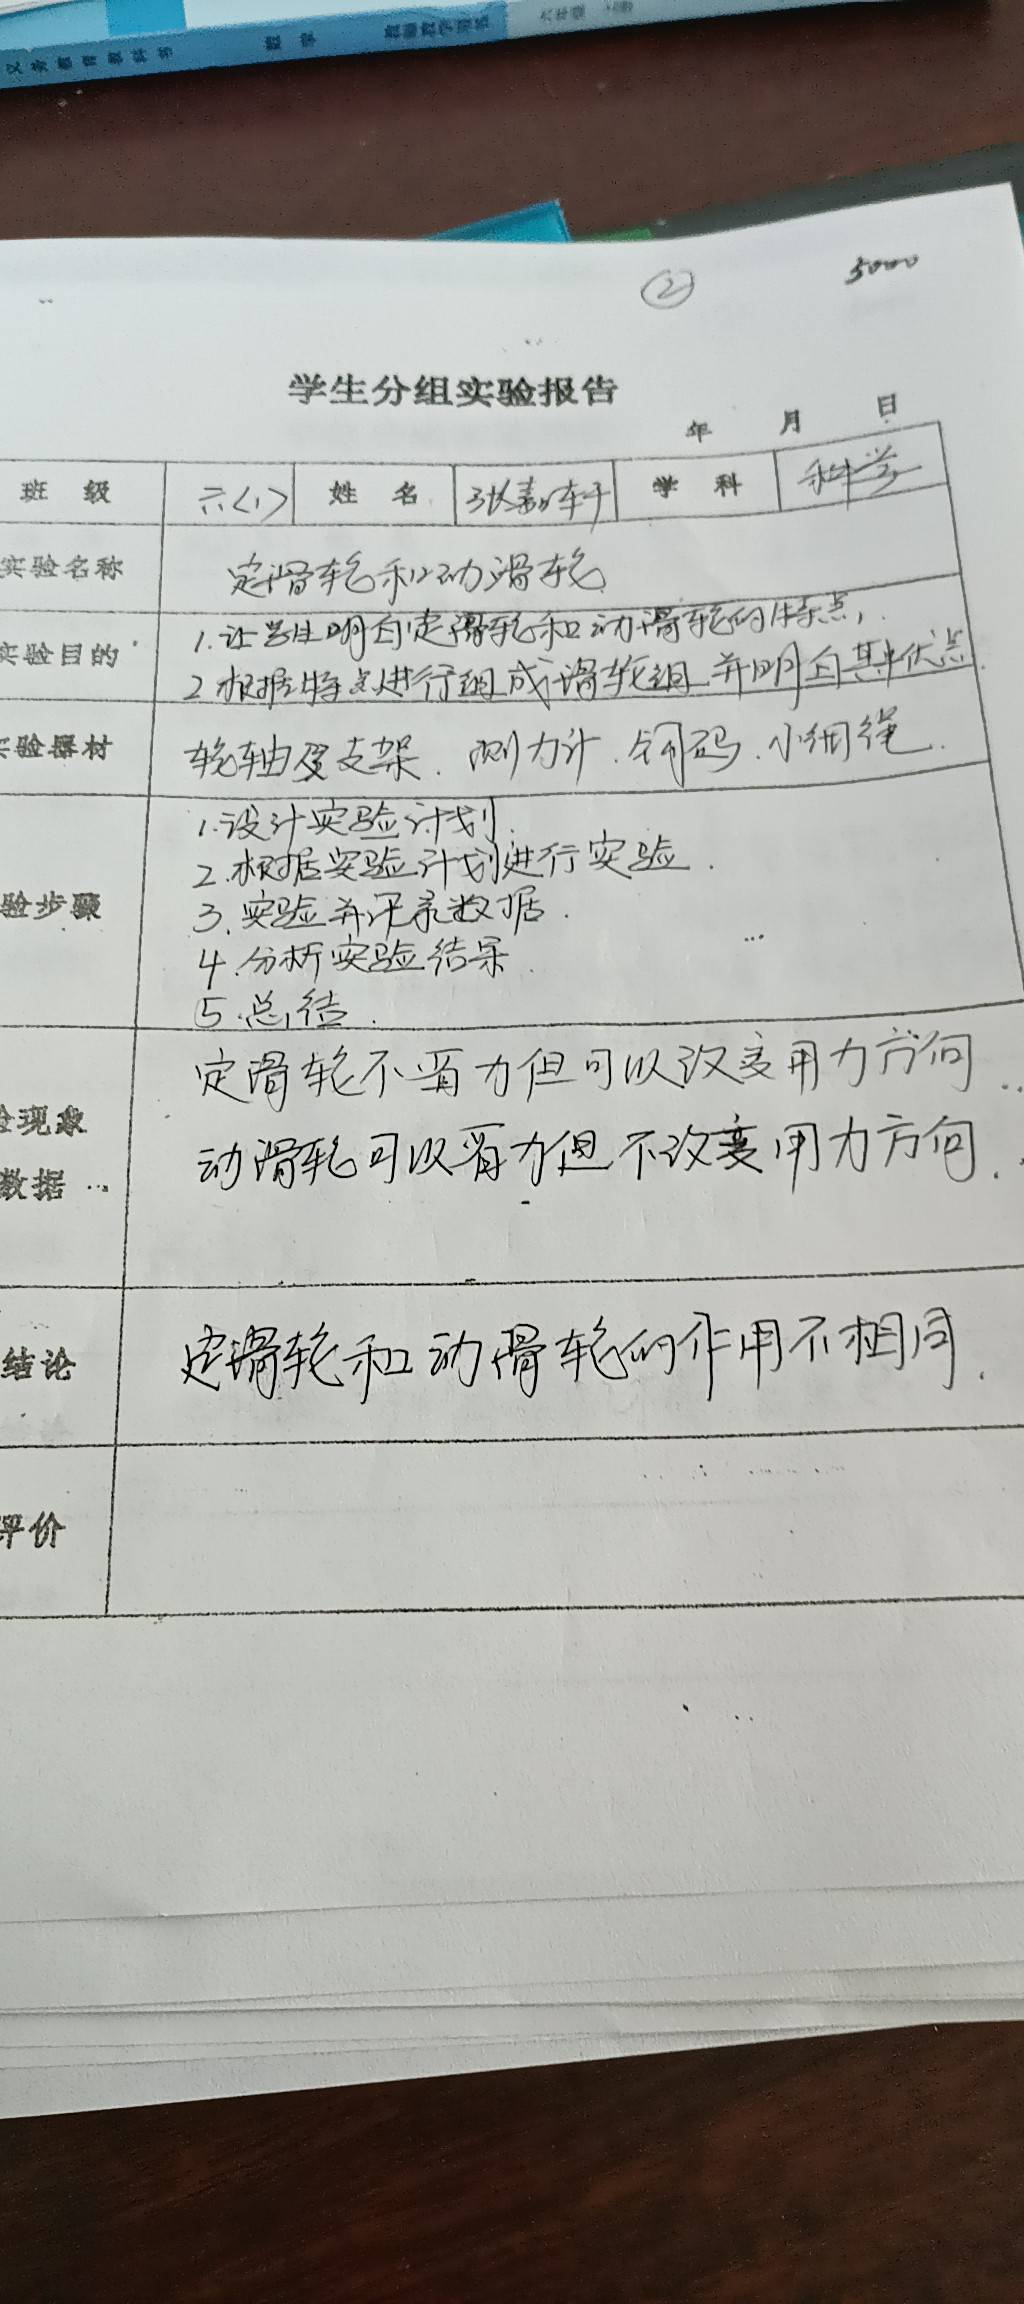 义务教育教科书 数学 六年级 上册
② 5000
学生分组实验报告
年 月 日
班 级 六〈1〉 姓 名 学 科 科学
实验名称 定滑轮和动滑轮
实验目的 1.让学生明白定滑轮和动滑轮的特点,
2 根据特点进行组成滑轮组并明白其中优点.
实验器材 轮轴及支架.测力计.钩码.小细绳.
验步骤 1.设计实验计划.
2.根据实验计划进行实验.
3.实验并记录数据.
4.分析实验结果.
5.总结.
验现象 定滑轮不省力但可以改变用力方向
数据 动滑轮可以省力但不改变用力方向.
结论 定滑轮和动滑轮的作用不相同.
评价